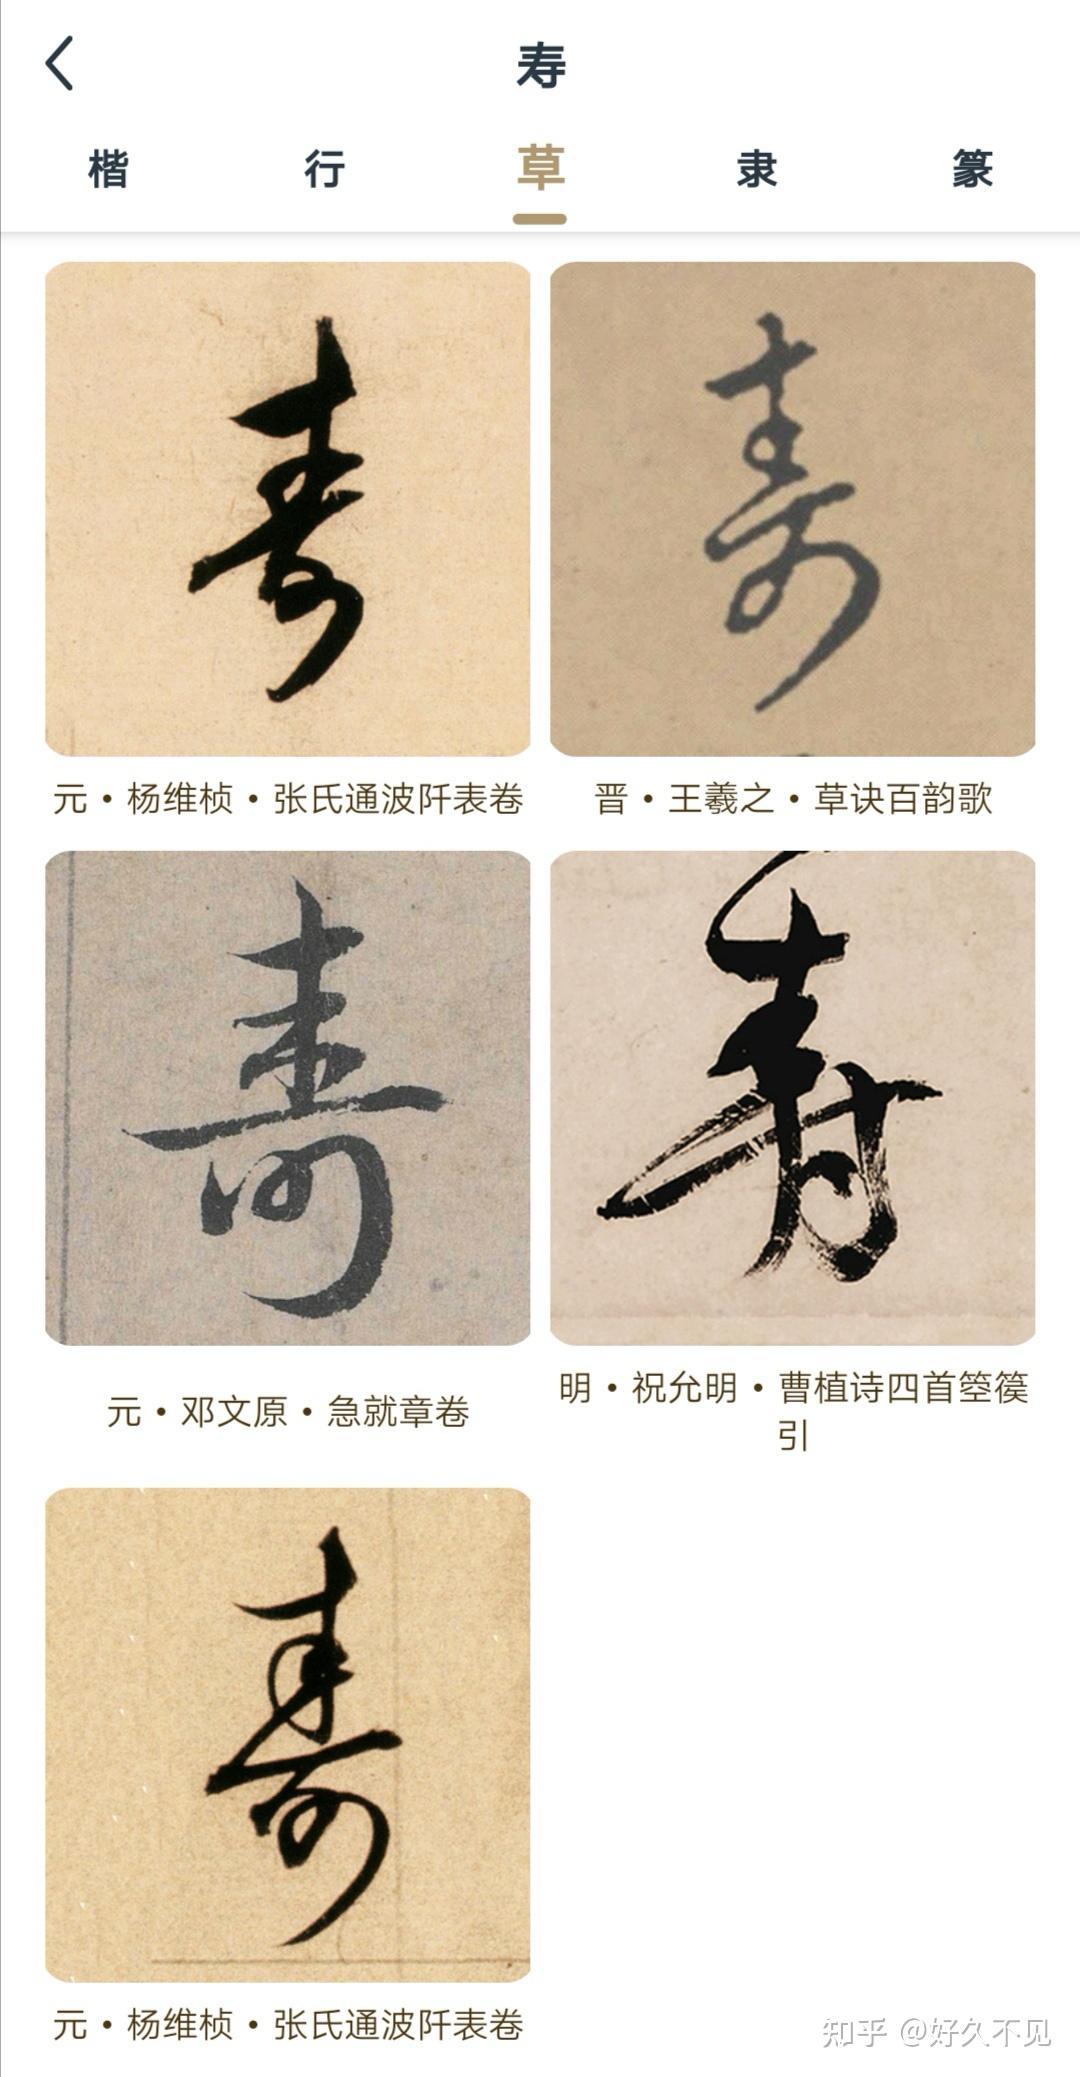 寿
楷 行 草 隶 篆
寿 寿
元·杨维桢·张氏通波阡表卷 晋·王羲之·草诀百韵歌
寿 寿
元·邓文原·急就章卷 明·祝允明·曹植诗四首箜篌
引
寿
元·杨维桢·张氏通波阡表卷
知乎 @好久不见